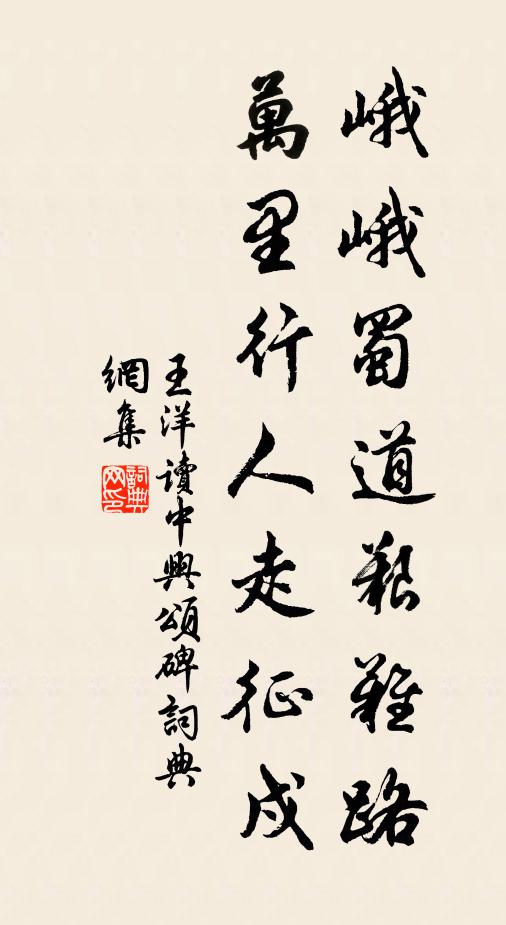 峨峨蜀道艱難路
萬里行人走征戍
王洋讀中興頌碑詞典
網集
詞典網印